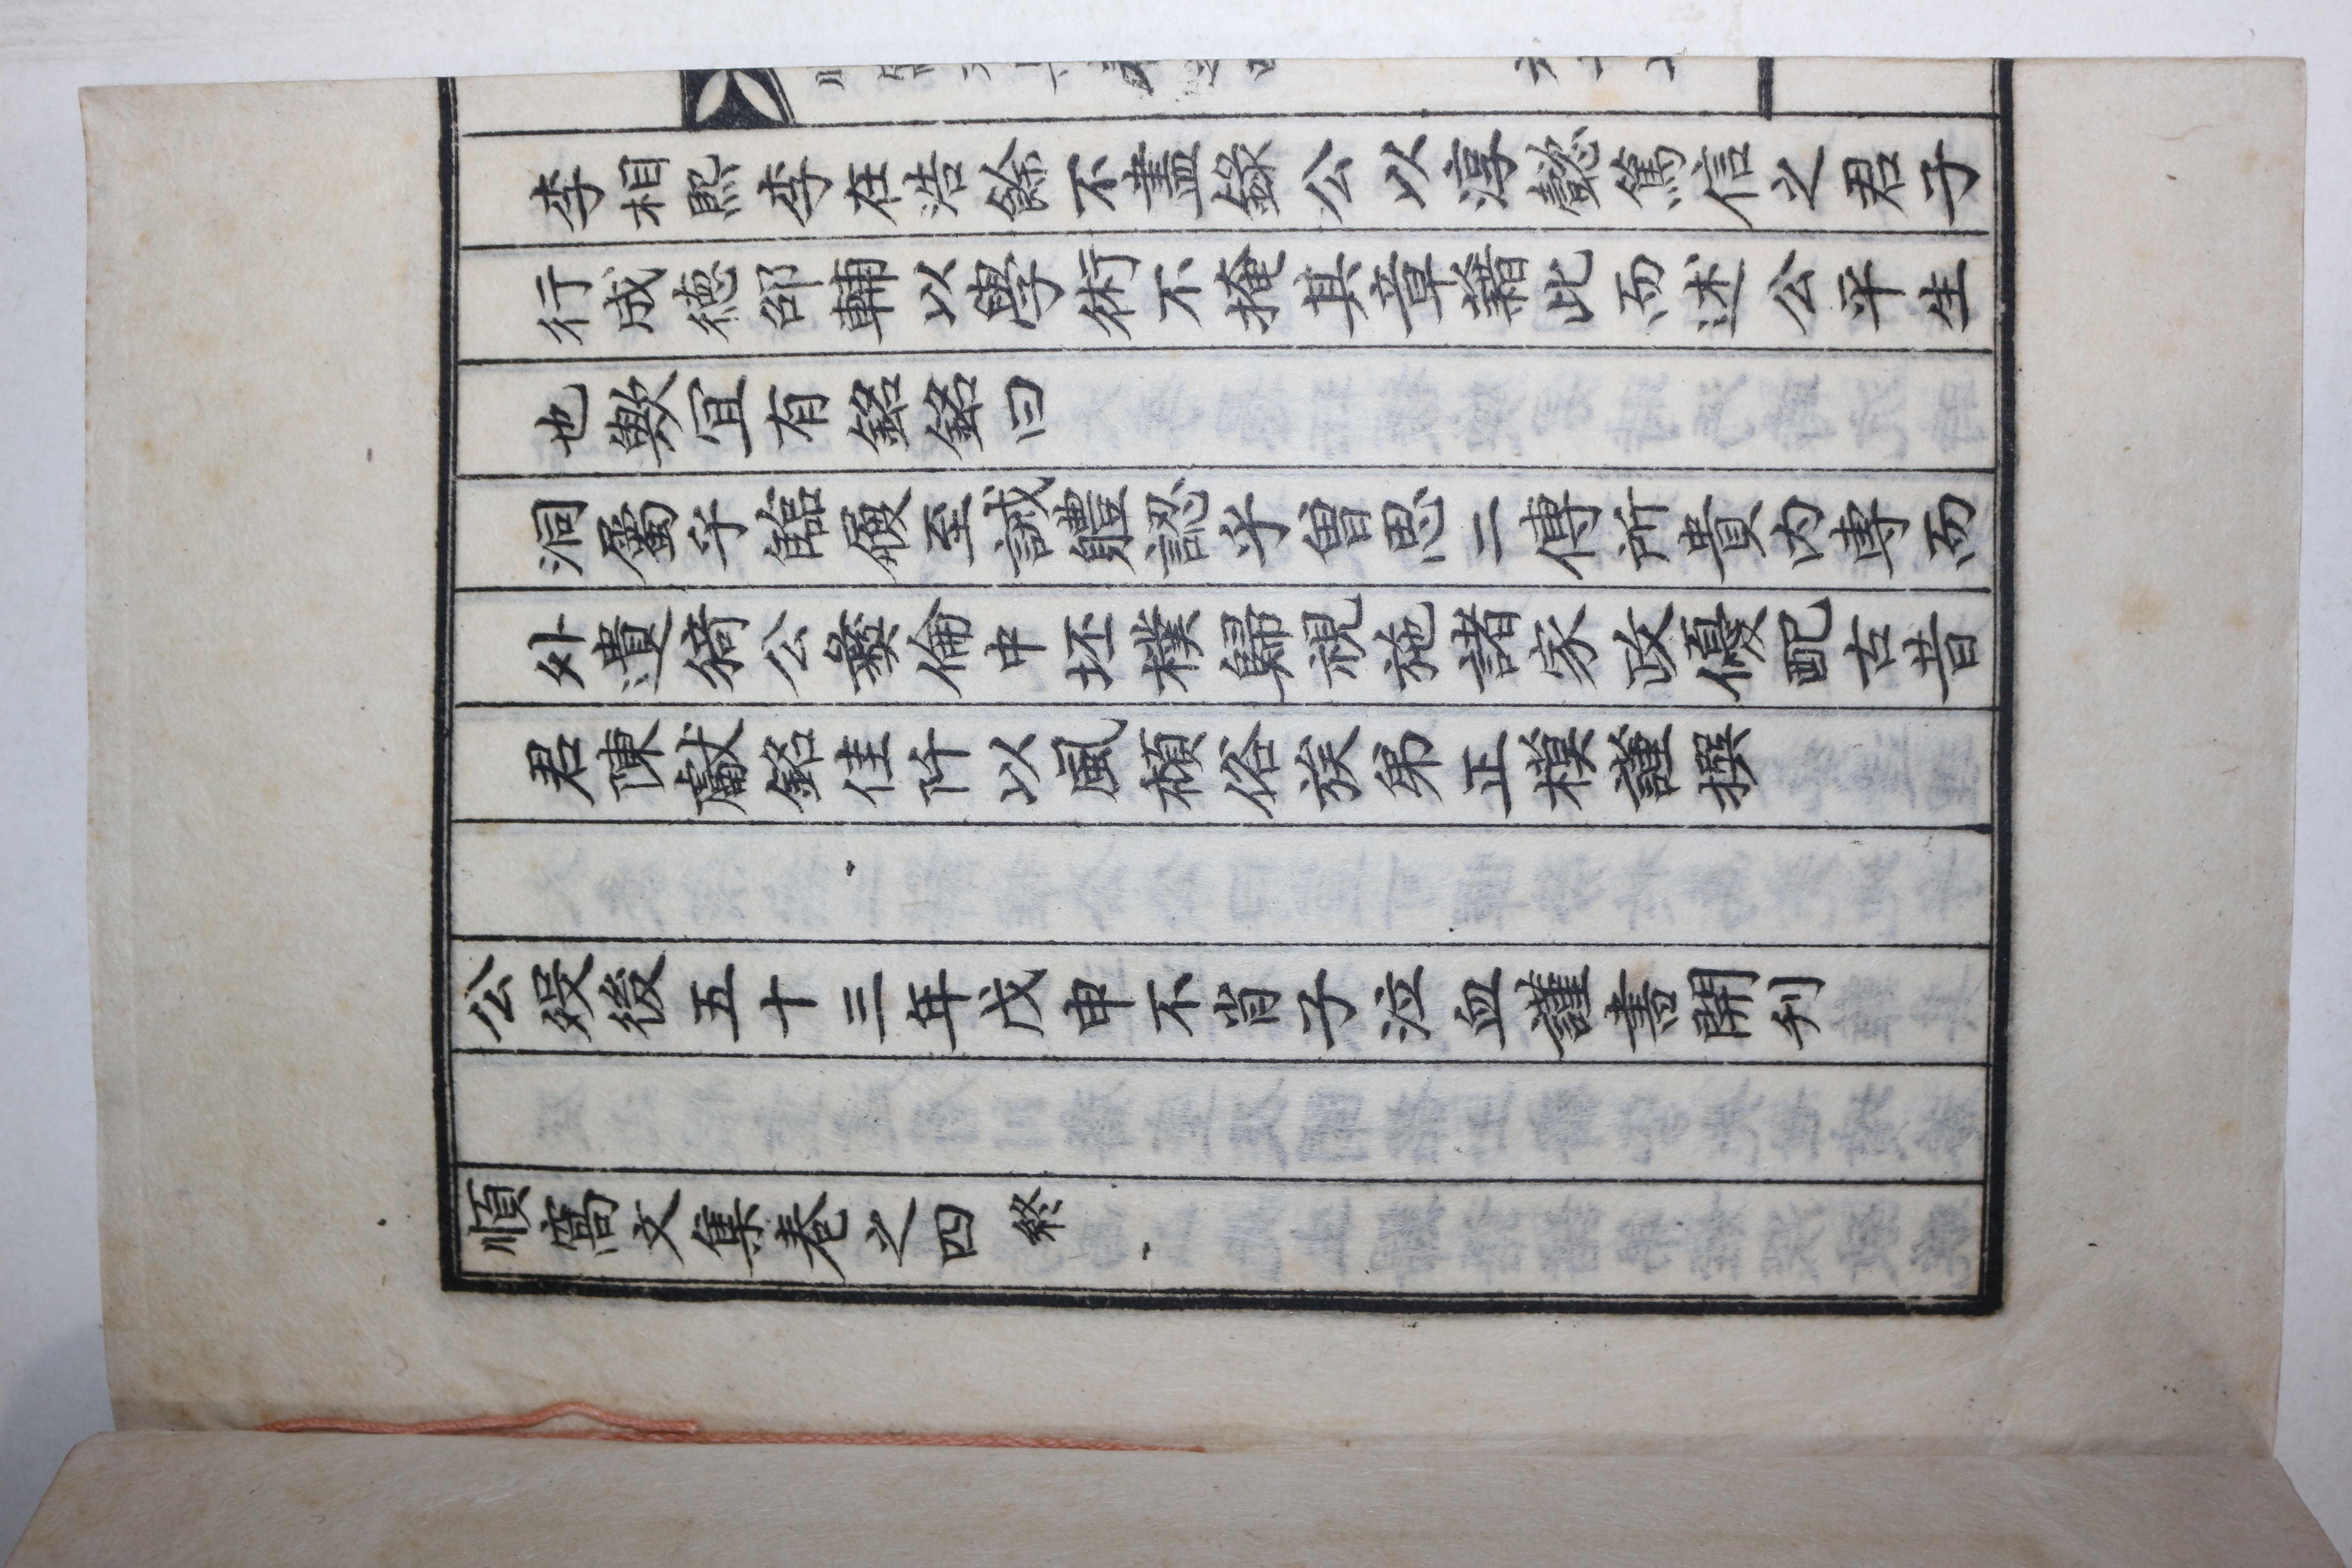 李相熙李在浩餘不盡錄公以淳慤篤信之君子
行成德邵輔以學術不掩其章藉此而述公平生
也歟宜有銘銘曰
洞屬乎臨履至誠體認乎曾思二傳所貴內專而
外遺猗公彛倫中坯樸歸視施諸家政優配古昔
君陳獻銘佳阡以風頹俗族弟正模謹撰
公歿後五十三年戊申不肖子泣血謹書開刋
順窩文集卷之四 終